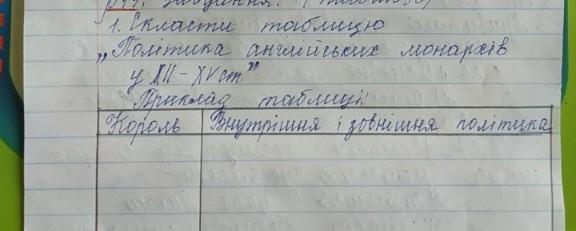 завдання:
1. Скласти таблицю
„Політика англійських монархів
у XII - XV ст."
Приклад таблиці:
Король Внутрішня і зовнішня політика